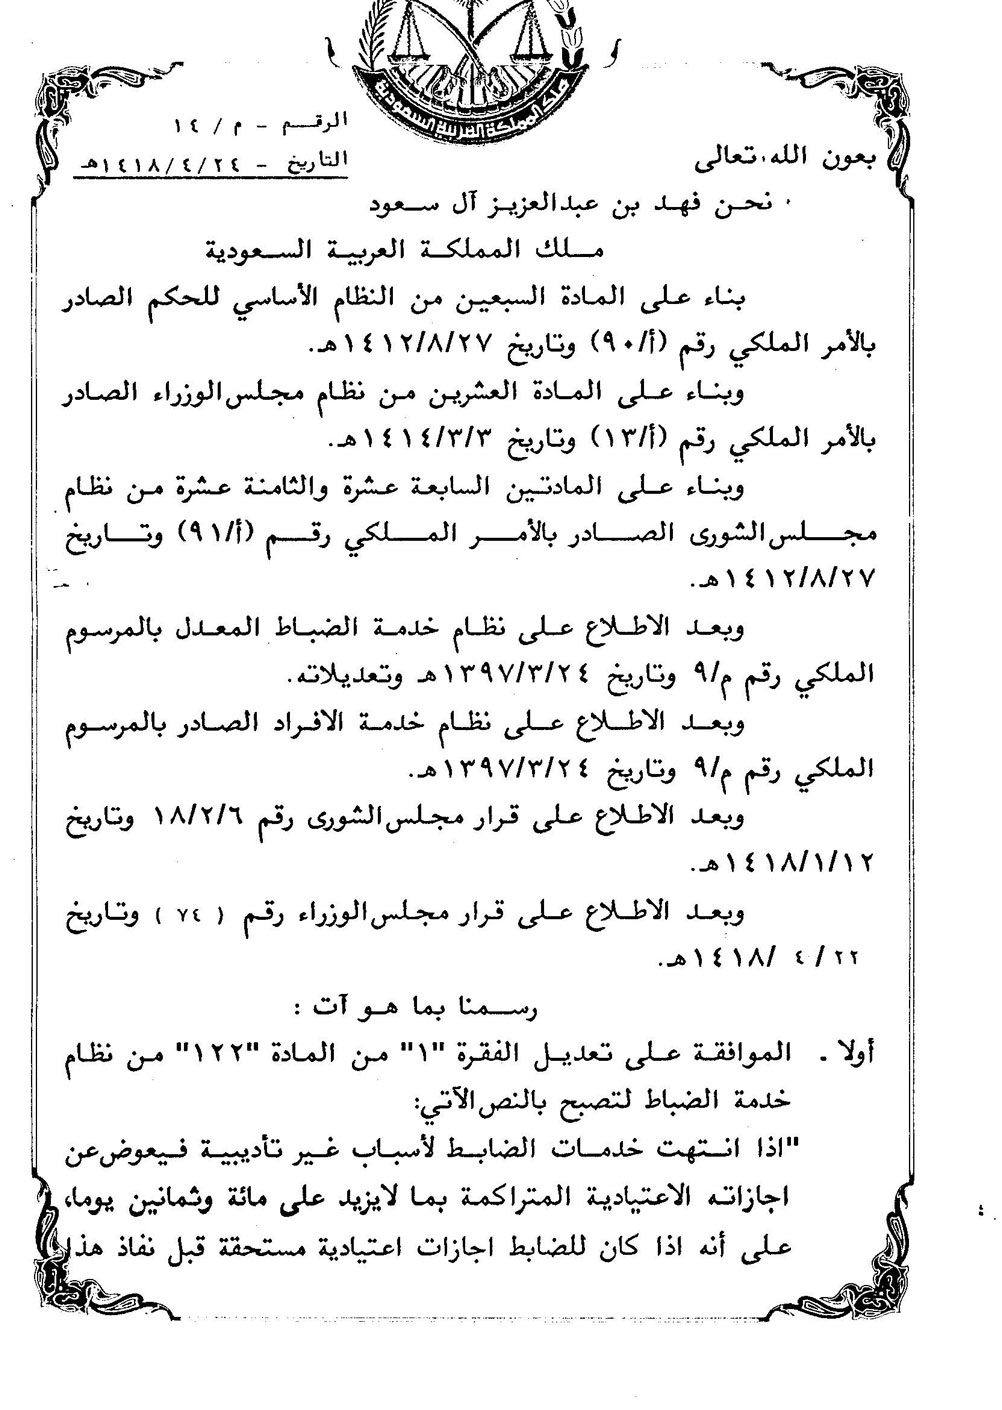 ملك المملكة العربية السعودية
الرقـــم - م / ١٤
التاريخ - ١٤١٨/٤/٢٤هـ
بعون الله تعالى
نحـن فهـد بن عبدالعزيـز آل سـعود
مـلك المملكـة العربيـة السـعودية
بناء علـى المادة السبعين من النظام الأساسي للحكم الصادر
بالأمر الملكي رقم (أ/٩٠) وتاريخ ١٤١٢/٨/٢٧هـ.
وبنـاء علـى المـادة العشريـن مـن نظـام مجـلس الوزراء الصـادر
بالأمر الملكي رقم (أ/١٣) وتاريخ ١٤١٤/٣/٣هـ.
وبنـاء علـى المادتـين السابعة عشـرة والثامنـة عشـرة مـن نظـام
مجـــلس الشورى الصـــادر بالأمـــر المـــلكي رقـــم (أ/٩١) وتـــاريخ
١٤١٢/٨/٢٧هـ.
وبعـد الاطـلاع علـى نظـام خدمـة الضبـاط المعـدل بالمرسوم
الملكي رقم م/٩ وتاريخ ١٣٩٧/٣/٢٤هـ وتعديلاته.
وبعـد الاطـلاع علـى نظـام خدمـة الافـراد الصـادر بالمرسـوم
الملكي رقم م/٩ وتاريخ ١٣٩٧/٣/٢٤هـ.
وبعـد الاطـلاع علـى قـرار مجـلس الشورى رقم ١٨/٢/٦ وتاريخ
١٤١٨/١/١٢هـ.
وبعـد الاطـلاع علـى قـرار مجـلس الوزراء رقـم ( ٧٤ ) وتـاريخ
٢٢ / ٤ /١٤١٨هـ.
رسـمنا بما هـو آت :
أولا ـ الموافقـة على تعديـل الفقرة "١" من المادة "١٢٢" من نظام
خدمة الضباط لتصبح بالنص الآتي:
"اذا انـتهت خدمـات الضابـط لأسـباب غـير تأديبيـة فـيعوض عن
اجازاتـه الاعتياديـة المتراكمـة بمـا لايزيـد علـى مائـة وثمانين يومـا،
علـى أنه اذا كان للضابط اجازات اعتيادية مستحقة قبل نفاذ هذا